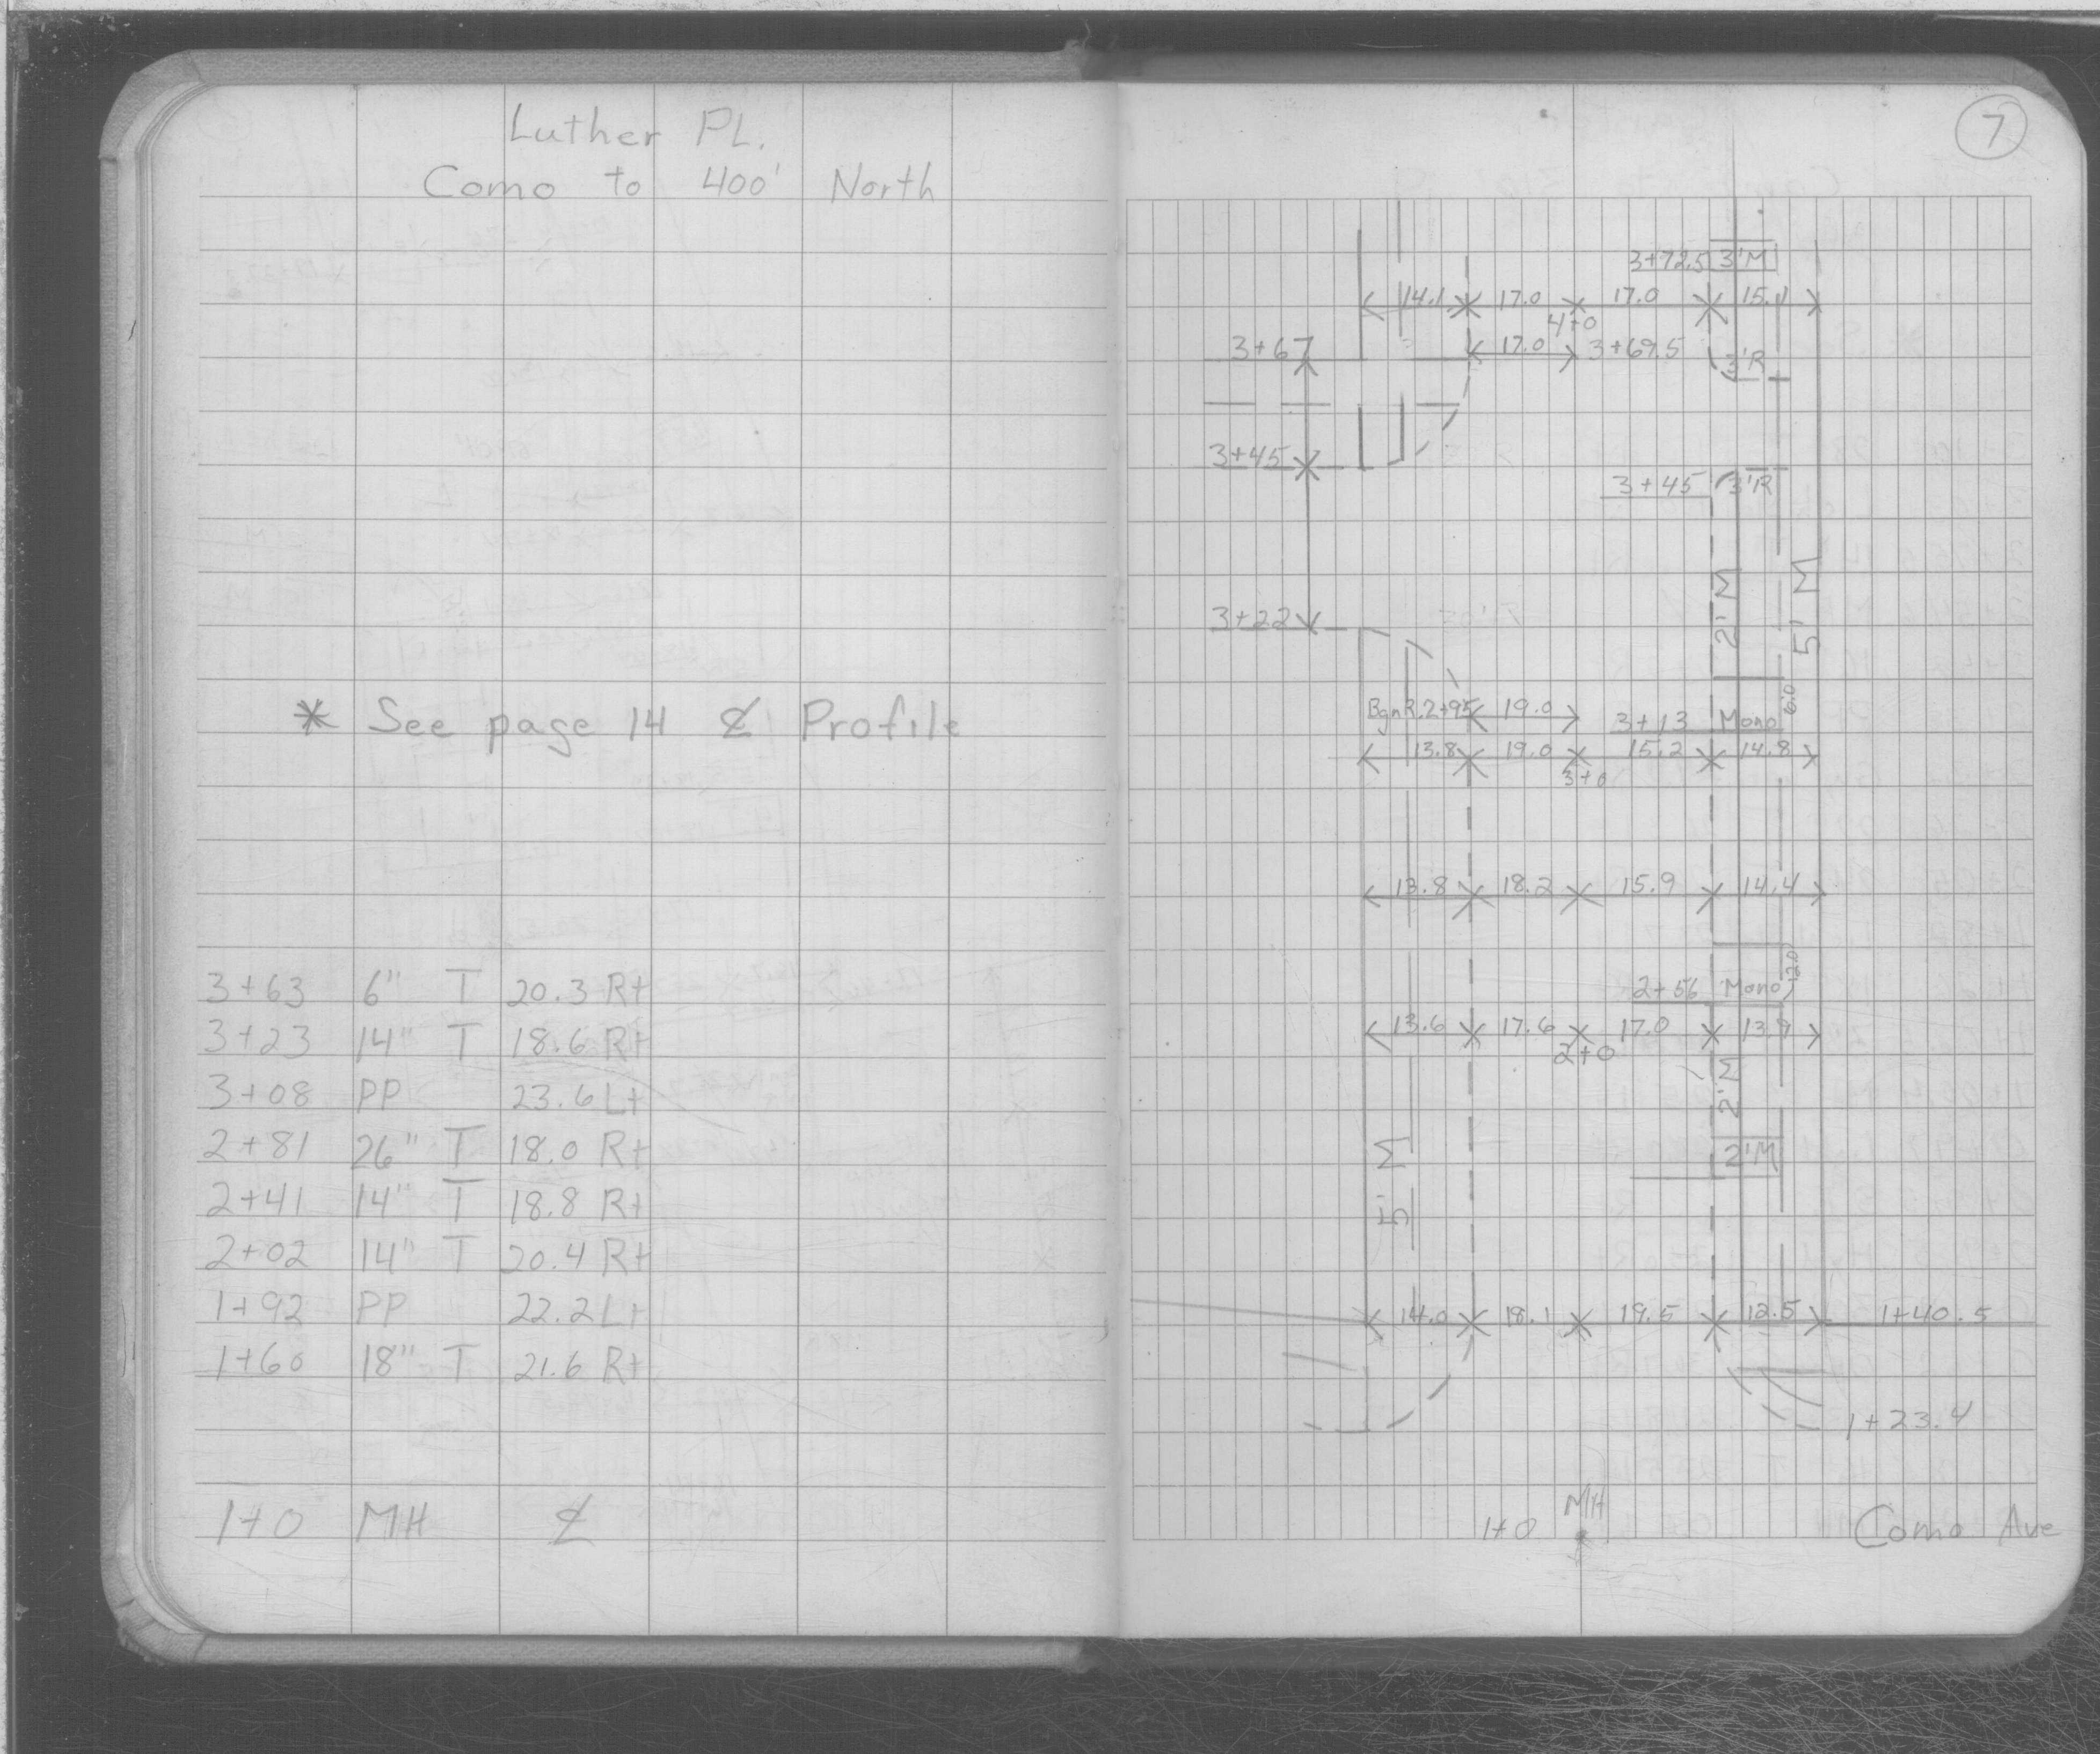 Luther PL.
Como to 400' North
* See page 14 ℄ Profile
3+63 6" T 20.3 Rt
3+23 14" T 18.6 Rt
3+08 PP 23.6 Lt
2+81 26" T 18.0 Rt
2+41 14" T 18.8 Rt
2+02 14" T 20.4 Rt
1+92 PP 22.2 Lt
1+60 18" T 21.6 Rt
1+0 MH ℄
7
3+72.5 3'M
14.1 17.0 17.0 15.1
4+0
3+67 17.0 3+69.5 3'R
3+45
3+45 3'R
2'M
5' M
3+22
6.0
Bgn R. 2+95 19.0 3+13 Mono
13.8 19.0 15.2 14.8
3+0
13.8 18.2 15.9 14.4
12.0
2+56 Mono
13.6 17.6 17.0 13.9
2+0
2'M
2'M
5' M
14.0 18.1 19.5 12.5 1+40.5
1+23.4
MH
1+0
Como Ave